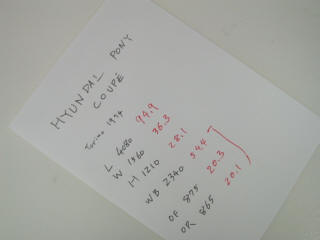 HYUNDAI PONY
COUPÉ
Torino 1974
L 4080 94.9
W 1560 36.3
H 1210 28.1
WB 2340 54.4
OF 875 20.3
OR 865 20.1